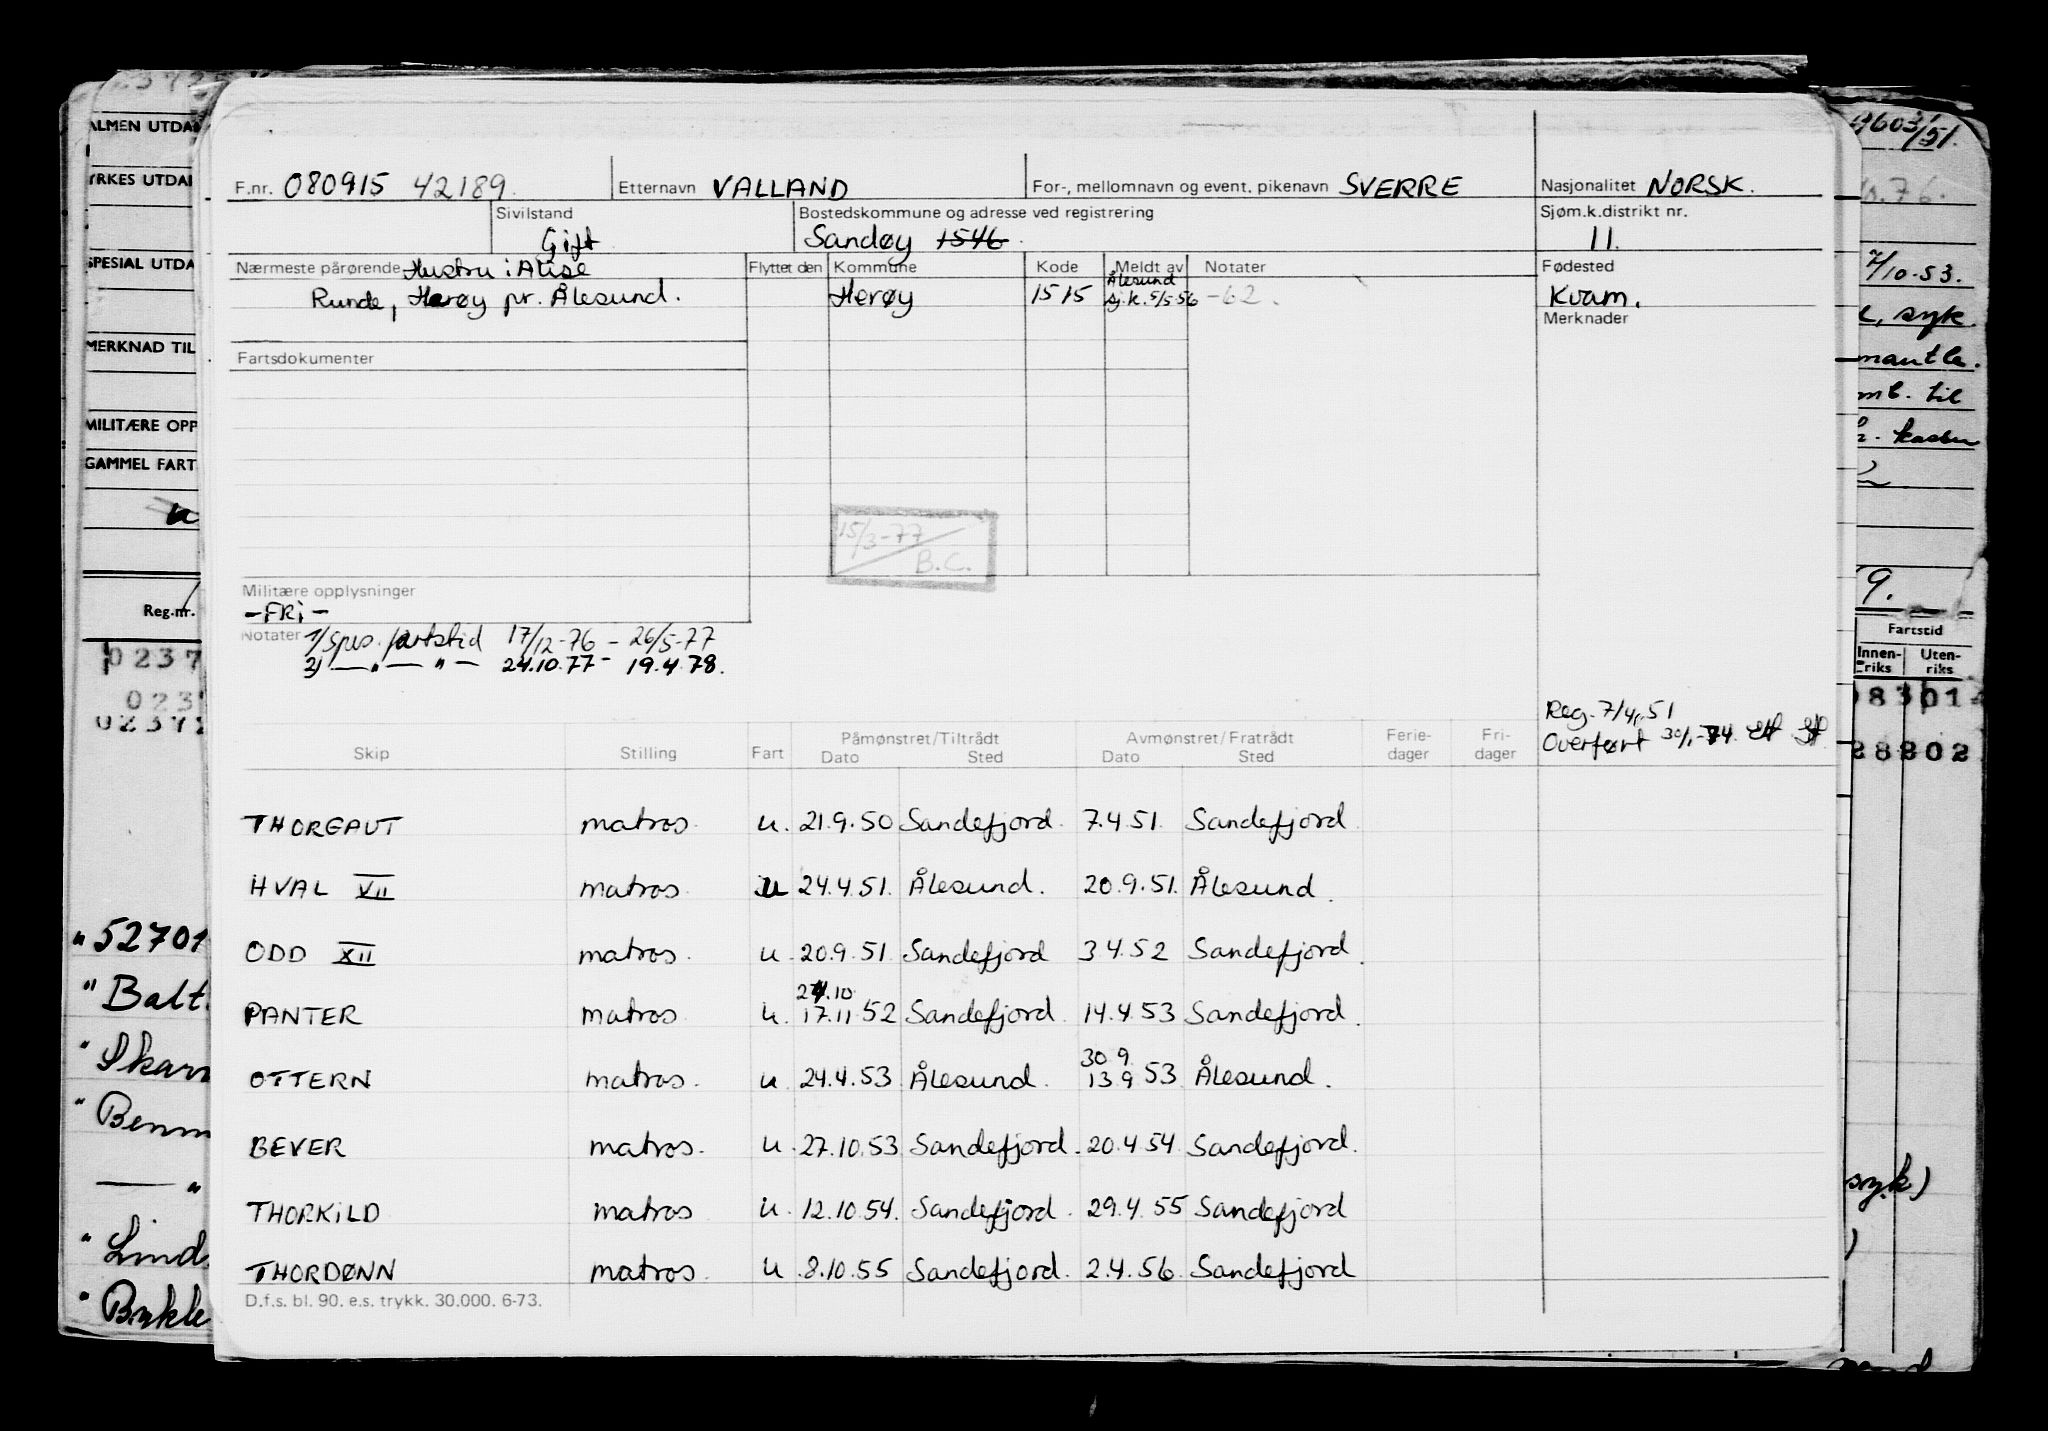 F.nr. 080915 42189. Etternavn VALLAND For-, mellomnavn og event. pikenavn SVERRE Nasjonalitet NORSK.
Sivilstand Bostedskommune og adresse ved registrering Sjøm.k.distrikt nr.
Gift Sandøy 1546 11.
Nærmeste pårørende Hustru: Alise Flyttet den Kommune Kode Meldt av Notater Fødested
Runde, Herøy pr. Ålesund. Herøy 1515 Ålesund sj.k. 5/5-56 -62. Kvam.
Merknader
Fartsdokumenter
15/3-77
B.C.
Militære opplysninger
-FRI-
Notater 1) Spes. fartstid 17/12-76 - 26/5-77
2) — " — " — 24.10.77 - 19.4.78.
Reg. 7/4, 51
Overført 30/1-74.
Skip Stilling Fart Påmønstret/Tiltrådt Avmønstret/Fratrådt Ferie- Fri-
Dato Sted Dato Sted dager dager
THORGAUT matros u. 21.9.50 Sandefjord. 7.4.51. Sandefjord
HVAL VII matros u 24.4.51. Ålesund. 20.9.51. Ålesund.
ODD XII matros. u. 20.9.51. Sandefjord 3.4.52 Sandefjord.
24.10
PANTER matros u. 17.11.52 Sandefjord. 14.4.53 Sandefjord.
30.9.
OTTERN matros. u. 24.4.53 Ålesund. 13.9 53 Ålesund.
BEVER matros. u. 27.10.53 Sandefjord. 20.4.54. Sandefjord.
THORKILD matros u. 12.10.54. Sandefjord. 29.4.55 Sandefjord
THORDØNN matros. u. 8.10.55 Sandefjord. 2.4.56. Sandefjord
D.f.s. bl. 90. e.s. trykk. 30.000. 6-73.
ALMEN UTDA
YRKES UTDA
SPESIAL UTDA
MERKNAD TIL
MILITÆRE OPP
GAMMEL FART
Reg.nr.
0237
023
02372
" 52701
" Balt
" Skar
" Benn
— "
" Lind
" Bykle
9603/51.
76.
7/10-53.
syk.
mantle.
mb. til
9.
Fartstid
Innen- Uten-
riks riks
83014
28802
syk)